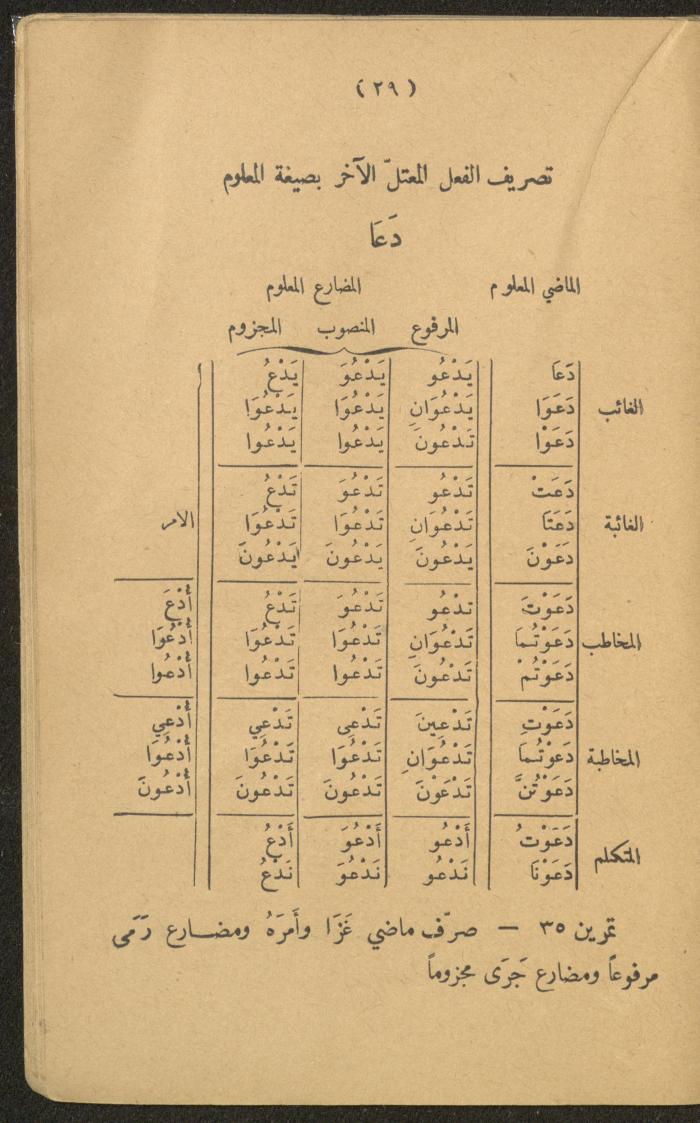 ( ٢٩ )
تصريف الفعل المعتلّ الآخر بصيغة المعلوم
دَعَا
الماضي المعلوم المضارع المعلوم
المرفوع المنصوب المجزوم
دَعَا يَدْعُو يَدْعُوَ يَدْعُ
الغائب دَعَوَا يَدْعُوَانِ يَدْعُوَا يَدْعُوَا
دَعَوْا يَدْعُونَ يَدْعُوا يَدْعُوا
دَعَتْ تَدْعُو تَدْعُوَ تَدْعُ
الغائبة دَعَتَا تَدْعُوَانِ تَدْعُوَا تَدْعُوَا الامر
دَعَوْنَ يَدْعُونَ يَدْعُونَ يَدْعُونَ
دَعَوْتَ تَدْعُو تَدْعُوَ تَدْعُ أُدْعَ
المخاطب دَعَوْتُمَا تَدْعُوَانِ تَدْعُوَا تَدْعُوَا أُدْعُوَا
دَعَوْتُمْ تَدْعُونَ تَدْعُوا تَدْعُوا أُدْعُوا
دَعَوْتِ تَدْعِينَ تَدْعِي تَدْعِي أُدْعِي
المخاطبة دَعَوْتُمَا تَدْعُوَانِ تَدْعُوَا تَدْعُوَا أُدْعُوَا
دَعَوْتُنَّ تَدْعَوْنَ تَدْعُونَ تَدْعُونَ أُدْعُونَ
المتكلم دَعَوْتُ أَدْعُو أَدْعُوَ أَدْعُ
دَعَوْنَا نَدْعُو نَدْعُوَ نَدْعُ
تمرين ٣٥ — صرّف ماضي غَزَا وأَمَرَهُ ومضارع رَمَى
مرفوعاً ومضارع جَرَى مجزوماً